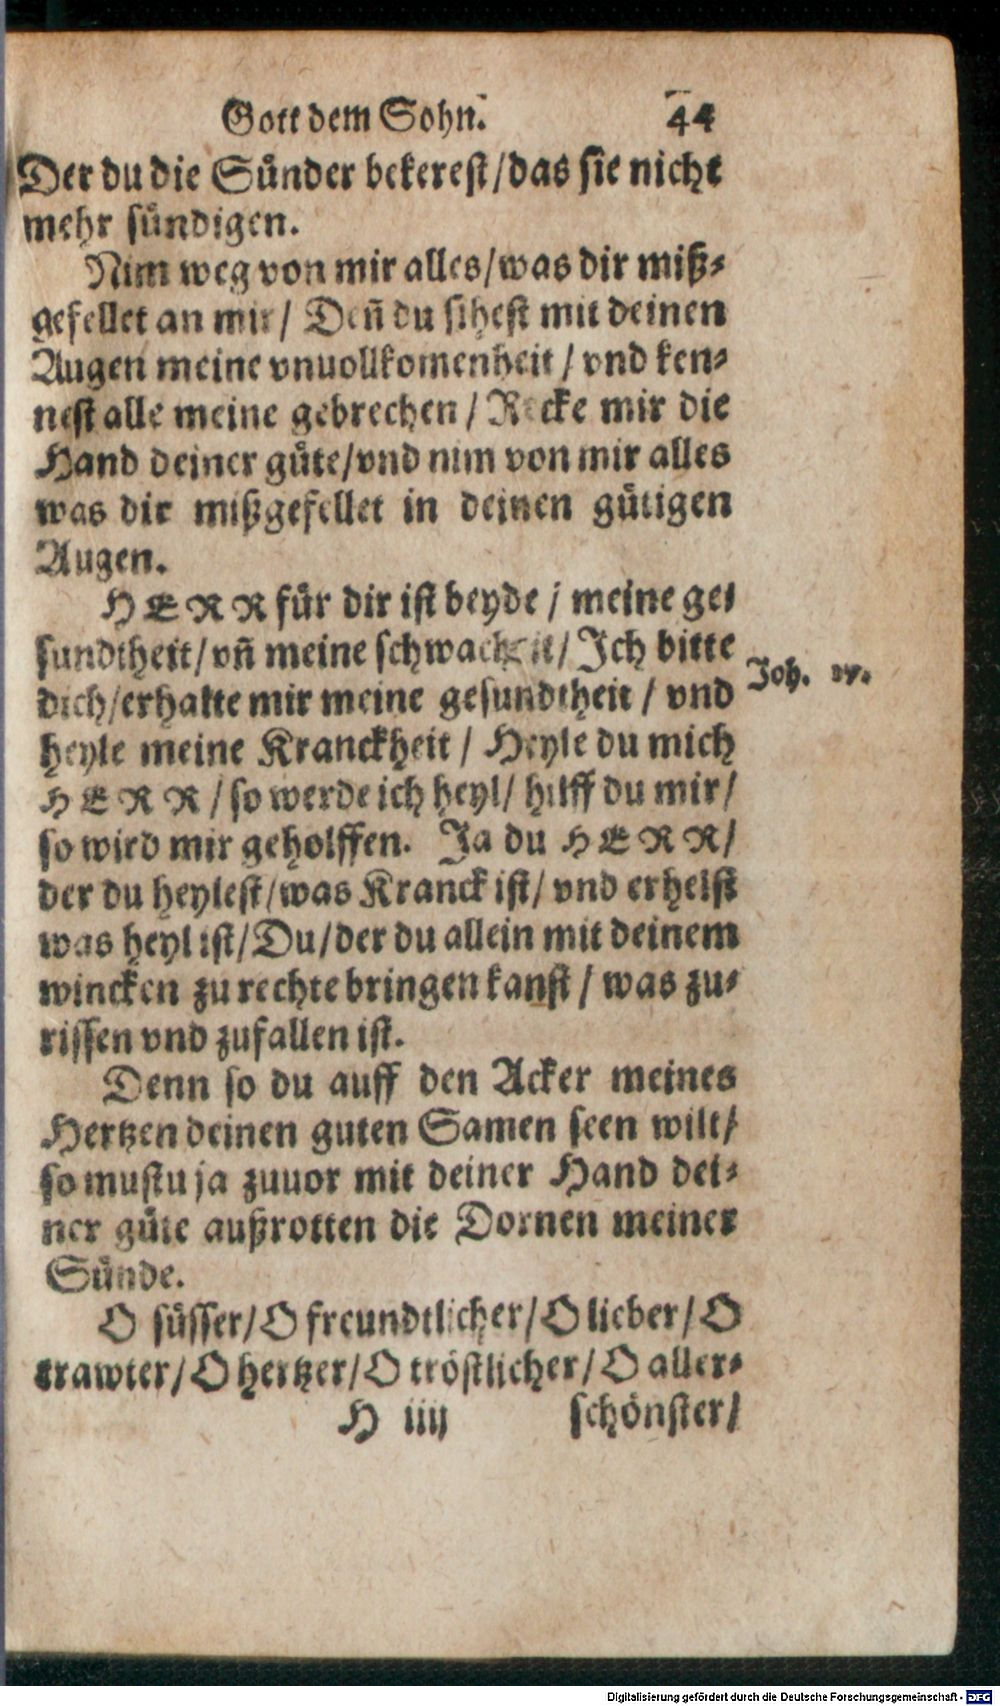 Gott dem Sohn. 44
Der du die Sünder bekerest/das sie nicht
mehr sündigen.
Nim weg von mir alles/was dir miß-
gefellet an mir/ Deñ du sihest mit deinen
Augen meine vnuollkomenheit / vnd ken-
nest alle meine gebrechen / Recke mir die
Hand deiner güte/vnd nim von mir alles
was dir mißgefellet in deinen gütigen
Augen.
HERR für dir ist beyde / meine ge-
sundtheit/vñ meine schwacheit/Ich bitte
dich/erhalte mir meine gesundtheit / vnd
heyle meine Kranckheit / Heyle du mich
HERR/so werde ich heyl/ hilff du mir/
so wird mir geholffen. Ja du HERR/
der du heylest/was Kranck ist/ vnd erhelst
was heyl ist/Du/der du allein mit deinem
wincken zu rechte bringen kanst / was zu-
rissen vnd zufallen ist.
Denn so du auff den Acker meines
Hertzen deinen guten Samen seen wilt/
so mustu ja zuuor mit deiner Hand dei-
ner güte außrotten die Dornen meiner
Sünde.
O süsser/O freundtlicher/O lieber/O
trawter/O hertzer/O tröstlicher/O aller-
H iiij schönster/
Joh. 17.
Digitalisierung gefördert durch die Deutsche Forschungsgemeinschaft - DFG